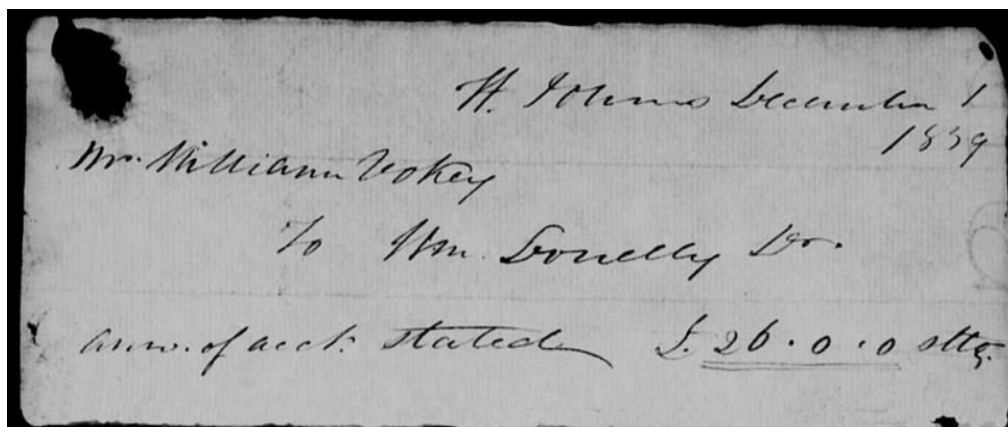 St. Johns December 1
1839
Mr. William Vokey
To Wm. Donelly Dr.
Amo. of acct. stated £26.0.0 sttg.